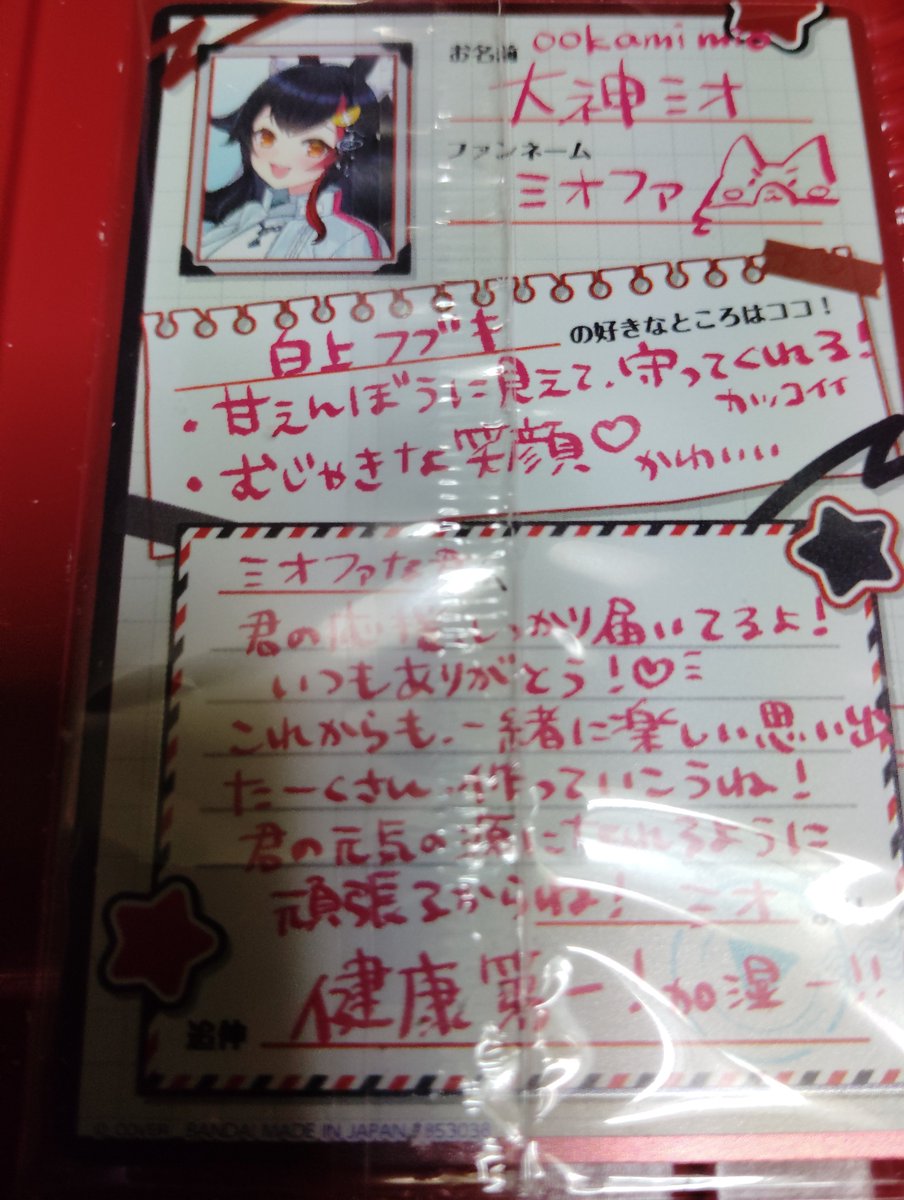 ookami mio
お名前 大神ミオ
ファンネーム
ミオファ
白上フブキ の好きなところはココ！
・甘えんぼうに見えて、守ってくれる！
カッコイイ
・むじゃきな笑顔♡ かわいい
ミオファな
君の応援しっかり届いてるよ！
いつもありがとう！♡
これからも、一緒に楽しい思い出
たーくさん作っていこうね！
君の元気の源になれるように
頑張るからね！ ミオ
追伸 健康第一！加湿ー!!
© COVER BANDAI MADE IN JAPAN 853038